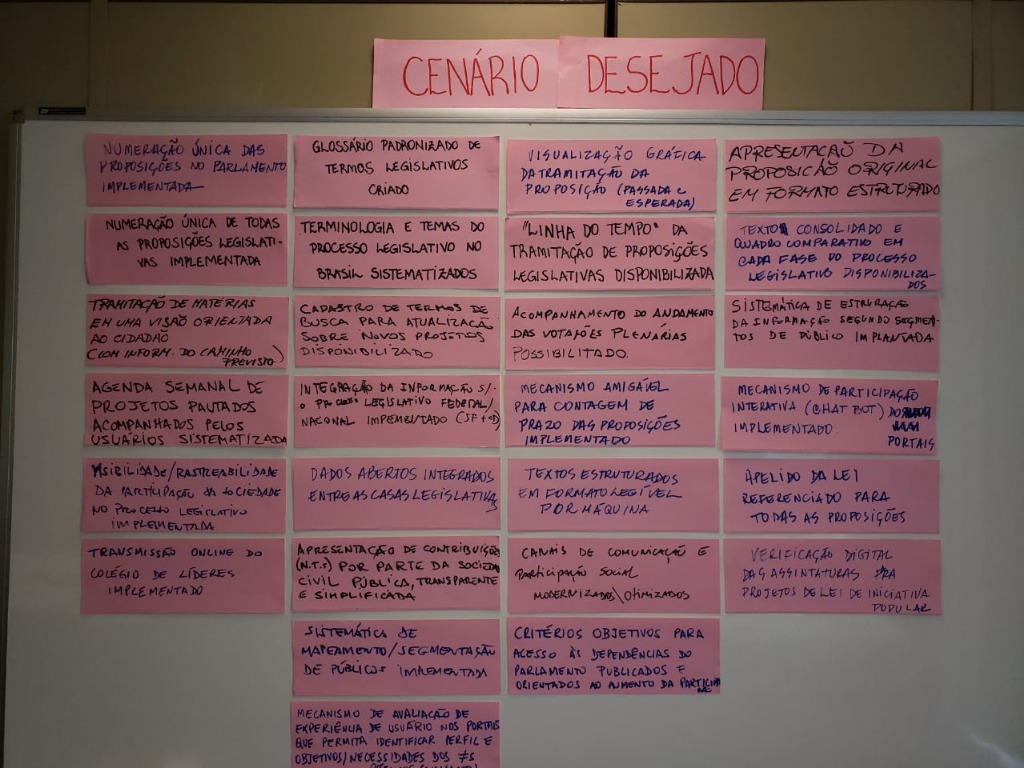 CENÁRIO DESEJADO
NUMERAÇÃO ÚNICA DAS
PROPOSIÇÕES NO PARLAMENTO
IMPLEMENTADA
NUMERAÇÃO ÚNICA DE TODAS
AS PROPOSIÇÕES LEGISLATI-
VAS IMPLEMENTADA
TRAMITAÇÃO DE MATÉRIAS
EM UMA VISÃO ORIENTADA
AO CIDADÃO
(COM INFORM. DO CAMINHO
PREVISTO)
AGENDA SEMANAL DE
PROJETOS PAUTADOS
ACOMPANHADOS PELOS
USUÁRIOS SISTEMATIZADA
VISIBILIDADE/RASTREABILIDADE
DA PARTICIPAÇÃO DA SOCIEDADE
NO PROCESSO LEGISLATIVO
IMPLEMENTADA
TRANSMISSÃO ONLINE DO
COLÉGIO DE LÍDERES
IMPLEMENTADO
GLOSSÁRIO PADRONIZADO DE
TERMOS LEGISLATIVOS
CRIADO
TERMINOLOGIA E TEMAS DO
PROCESSO LEGISLATIVO NO
BRASIL SISTEMATIZADOS
CADASTRO DE TERMOS DE
BUSCA PARA ATUALIZAÇÃO
SOBRE NOVOS PROJETOS
DISPONIBILIZADO
INTEGRAÇÃO DA INFORMAÇÃO S/
O PROCESSO LEGISLATIVO FEDERAL/
NACIONAL IMPEMENTADO (SF + CD)
DADOS ABERTOS INTEGRADOS
ENTRE AS CASAS LEGISLATIVAS
APRESENTAÇÃO DE CONTRIBUIÇÕES
(N.T.s) POR PARTE DA SOCIEDADE
CIVIL PÚBLICA, TRANSPARENTE
E SIMPLIFICADA
SISTEMÁTICA DE
MAPEAMENTO/SEGMENTAÇÃO
DE PÚBLICOS IMPLEMENTADA
MECANISMO DE AVALIAÇÃO DE
EXPERIÊNCIA DE USUÁRIO NOS PORTAIS
QUE PERMITA IDENTIFICAR PERFIL E
OBJETIVOS/NECESSIDADES DOS ≠S
VISUALIZAÇÃO GRÁFICA
DA TRAMITAÇÃO DA
PROPOSIÇÃO (PASSADA E
ESPERADA)
"LINHA DO TEMPO" DA
TRAMITAÇÃO DE PROPOSIÇÕES
LEGISLATIVAS DISPONIBILIZADA
ACOMPANHAMENTO DO ANDAMENTO
DAS VOTAÇÕES PLENÁRIAS
POSSIBILITADO.
MECANISMO AMIGÁVEL
PARA CONTAGEM DE
PRAZO DAS PROPOSIÇÕES
IMPLEMENTADO
TEXTOS ESTRUTURADOS
EM FORMATO LEGÍVEL
POR MÁQUINA
CANAIS DE COMUNICAÇÃO E
PARTICIPAÇÃO SOCIAL
MODERNIZADOS\OTIMIZADOS
CRITÉRIOS OBJETIVOS PARA
ACESSO ÀS DEPENDÊNCIAS DO
PARLAMENTO PUBLICADOS E
ORIENTADOS AO AUMENTO DA
APRESENTAÇÃO DA
PROPOSIÇÃO ORIGINAL
EM FORMATO ESTRUTURADO
TEXTO CONSOLIDADO E
QUADRO COMPARATIVO EM
CADA FASE DO PROCESSO
LEGISLATIVO DISPONIBILIZA-
DOS
SISTEMÁTICA DE
DA INFORMAÇÃO SEGUNDO SEGMEN-
TOS DE PÚBLICO IMPLANTADA
MECANISMO DE PARTICIPAÇÃO
INTERATIVA (CHAT BOT) DOS
IMPLEMENTADO.
PORTAIS
APELIDO DA LEI
REFERENCIADO PARA
TODAS AS PROPOSIÇÕES
VERIFICAÇÃO DIGITAL
DAS ASSINTATURAS PRA
PROJETOS DE LEI DE INICIATIVA
POPULAR